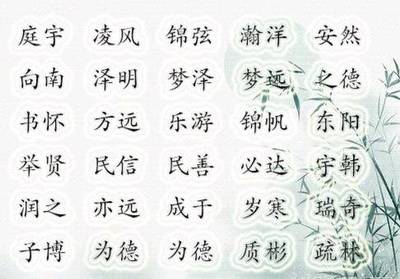 庭宇 凌风 锦弦 瀚洋 安然
向南 泽明 梦泽 梦远 之德
书怀 方远 乐游 锦帆 东阳
举贤 民信 民善 必达 宇韩
润之 亦远 成于 岁寒 瑞奇
子博 为德 为德 质彬 疏林